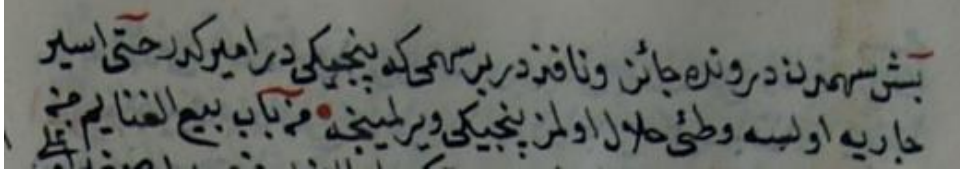 بش سهمدن درونده جائز و نافذدر بر سهمی که پنجیکی در امیرکدر حتی اسیر
جاریه اولسه وطئی حلال اولمز پنجیکی ویرلمینجه • من باب بیع الغنایم منه